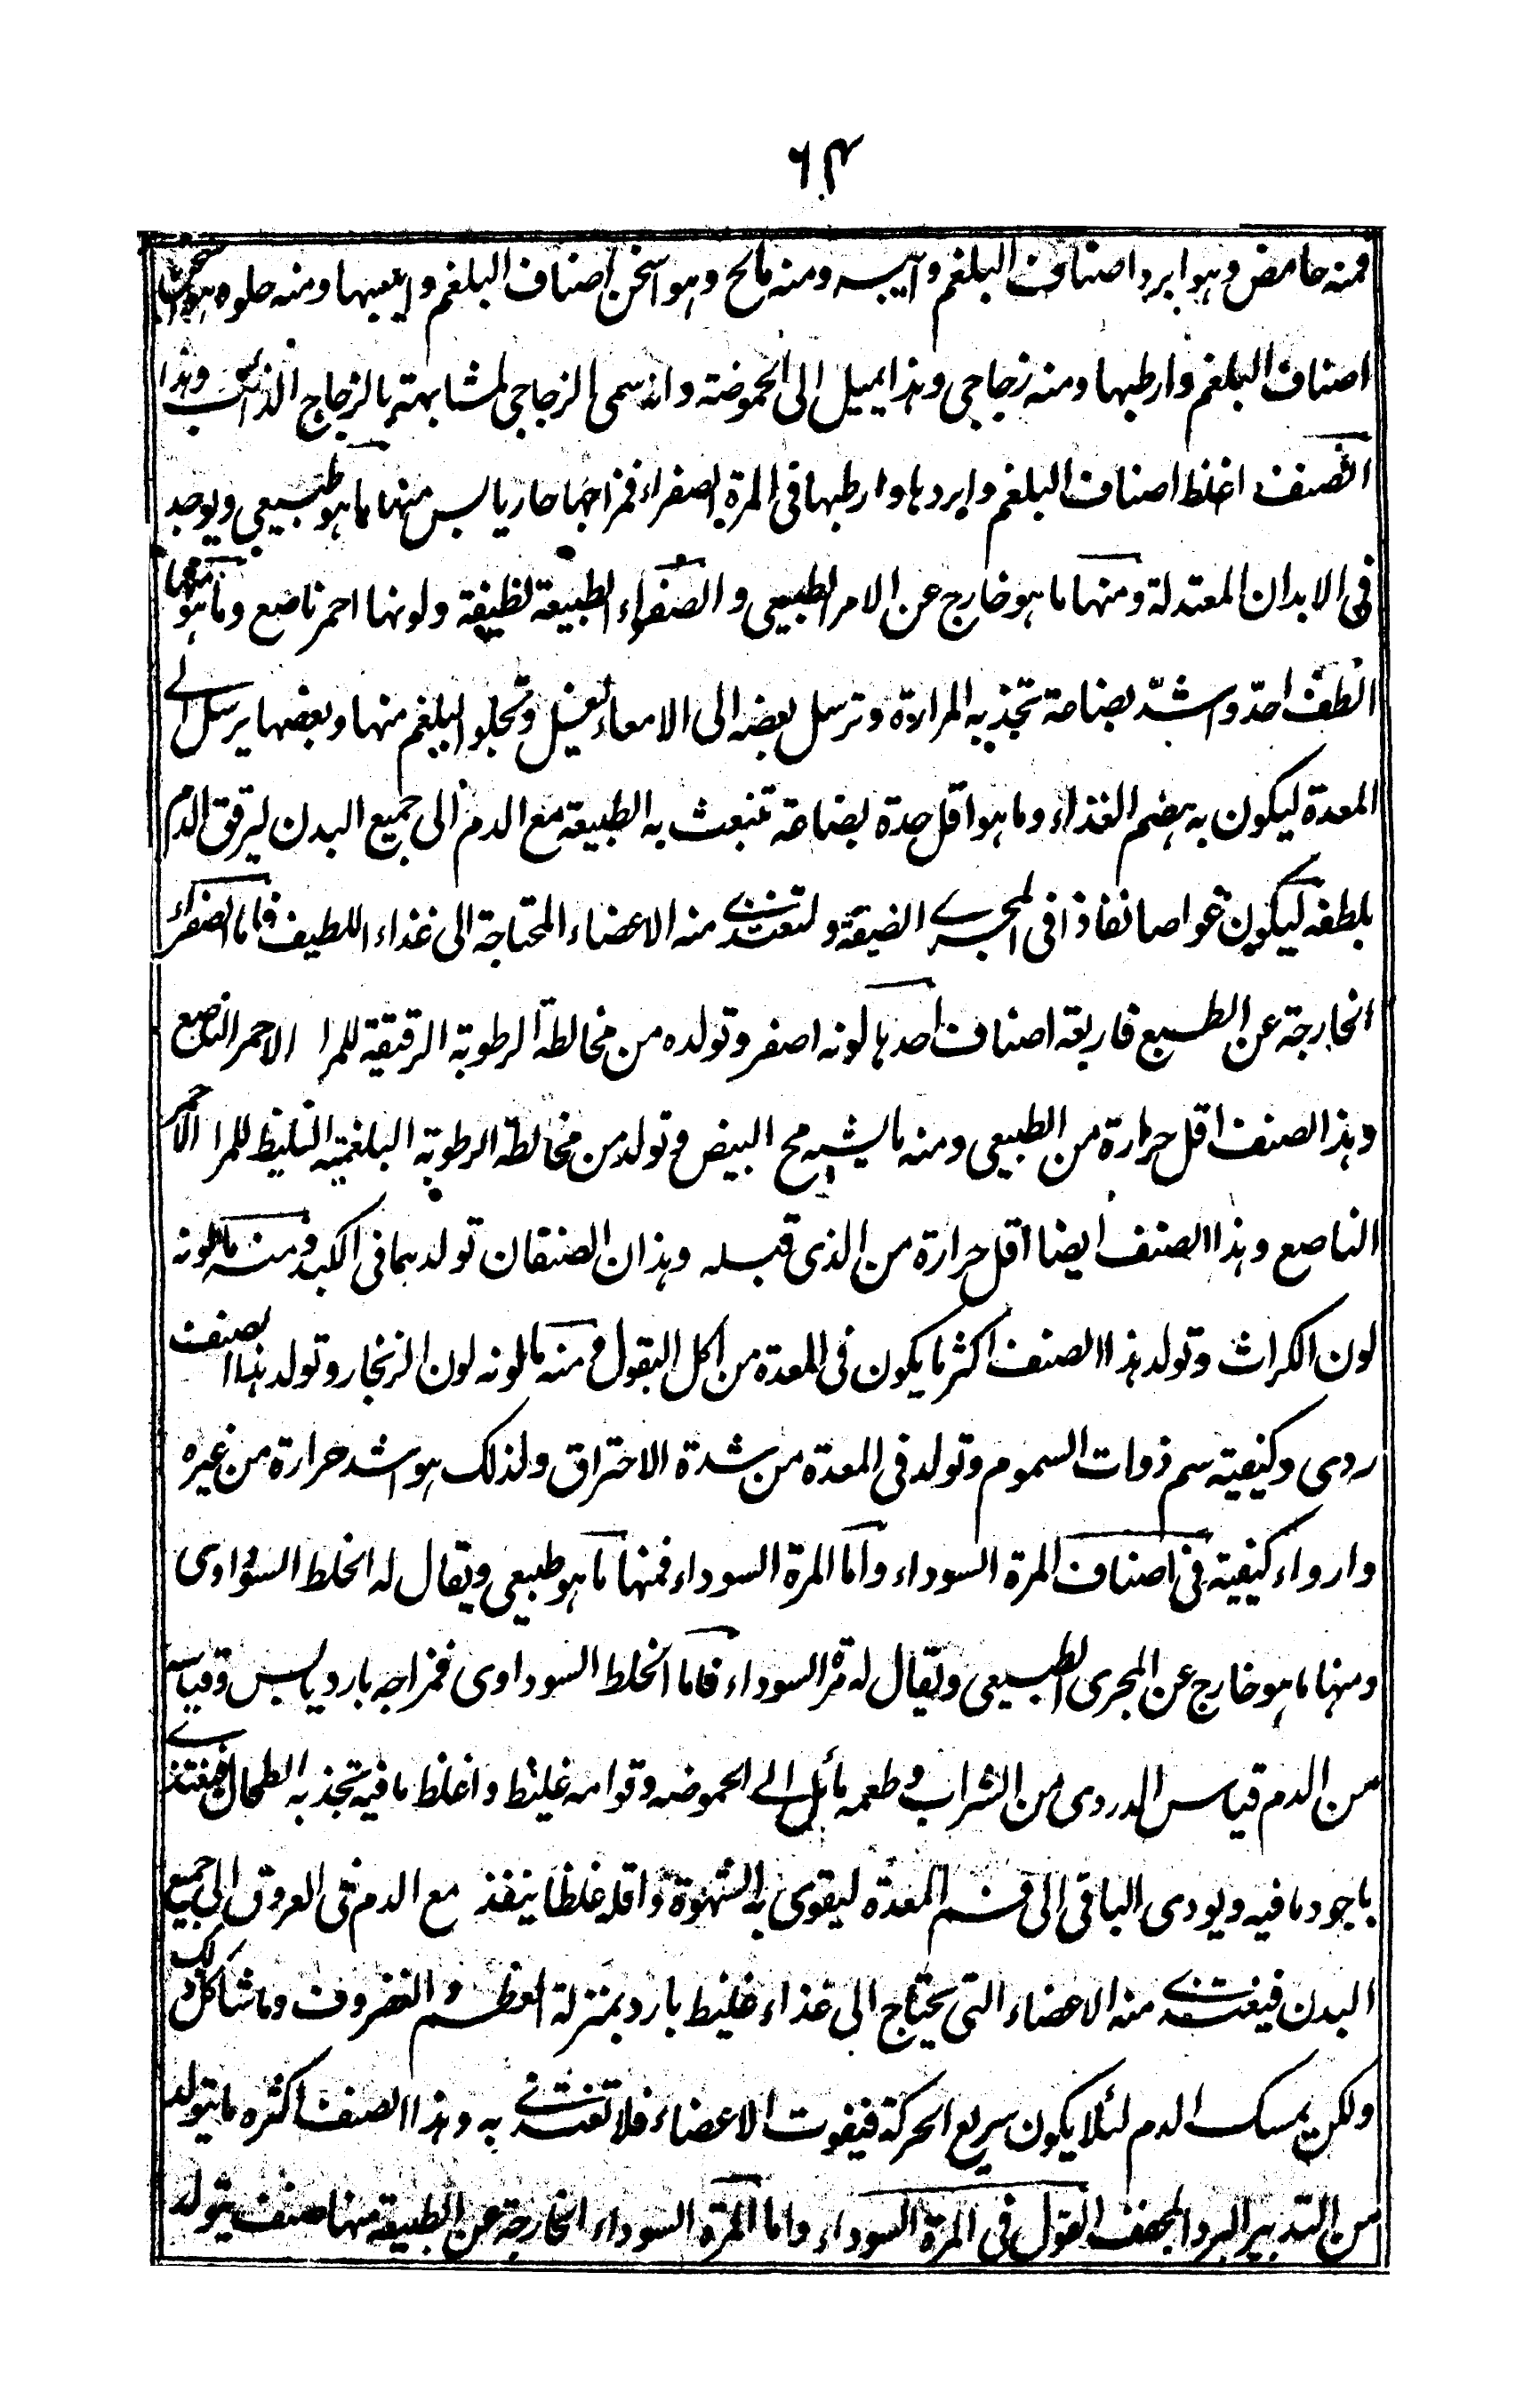 ۶۴
فمنه حامض وهو ابرد اصناف البلغم وايبسه ومنه مالح وهو اسخن اصناف البلغم وايبسها ومنه حلو وهو اسخن
اصناف البلغم وارطبها ومنه زجاجي وهذا يميل الى الحموضة وانما سمى الزجاجي لمشابهته بالزجاج الذائب وهذا
الصنف اغلظ اصناف البلغم وابردها وارطبها فى المرة الصفراء فمزاجها حار يابس منها ما هو طبيعي ويوجد
فى الابدان المعتدلة ومنها ما هو خارج عن الامر الطبيعي والصفراء الطبيعة لطيفة ولونها احمر ناصع وما هو منها
الطف احدّ واشدّ بضاعة تجذبه المرارة وترسل بعضه الى الامعاء لغسل وتجلو البلغم منها وبعضها يرسل الى
المعدة ليكون به هضم الغذاء وما هو اقل حدة بضاعة تنبعث به الطبيعة مع الدم الى جميع البدن ليرقق الدم
بلطفه ليكون غواصا نفاذا فى المجرى الضيقة ولتغتذى منه الاعضاء المحتاجة الى غذاء اللطيف فاما الصفراء
الخارجة عن الطبع فاربعة اصناف احدها لونه اصفر وتولده من مخالطة الرطوبة الرقيقة للمرا الاحمر الناصع
وهذا الصنف اقل حرارة من الطبيعي ومنه ما يشبه مح البيض وتولد من مخالطة الرطوبة البلغمية الغليظ للمرا الاحمر
الناصع وهذا الصنف ايضا اقل حرارة من الذى قبله وهذان الصنفان تولدهما فى الكبد ومنه ما لونه
لون الكراث وتولد هذا الصنف اكثر ما يكون فى المعدة من اكل البقول ومنه ما لونه لون الزنجار وتولد هذا الصنف
ردى وكيفيته سم ذوات السموم وتولد فى المعدة من شدة الاحتراق ولذلك هو اشد حرارة من غيره
وارواء كيفية فى اصناف المرة السوداء واما المرة السوداء فمنها ما هو طبيعي ويقال له الخلط السوداوى
ومنها ما هو خارج عن المجرى الطبيعي ويقال له مرة السوداء فاما الخلط السوداوى فمزاجه بارد يابس وقياسه
من الدم قياس الدردى من الشراب وطعمه مائل الى الحموضه وقوامه غليظ واغلظ ما فيه تجذبه الطحال فيغتذى
باجود ما فيه ويودى الباقى الى فم المعدة ليقوى به الشهوة واقله غلظا ينفذ مع الدم فى العروق الى جميع
البدن فيغتذى منه الاعضاء التى يحتاج الى غذاء غليظ بارد بمنزلة العظم والغضروف وما شاكل ذلك
ولكن يمسك الدم لئلا يكون سريع الحركة فيفوت الاعضاء فلا تغتذى به وهذا الصنف اكثره ما يتولد
من التدبير المبرد المجفف القول فى المرة السوداء واما المرة السوداء الخارجة عن الطبيعة منها صنف يتولد